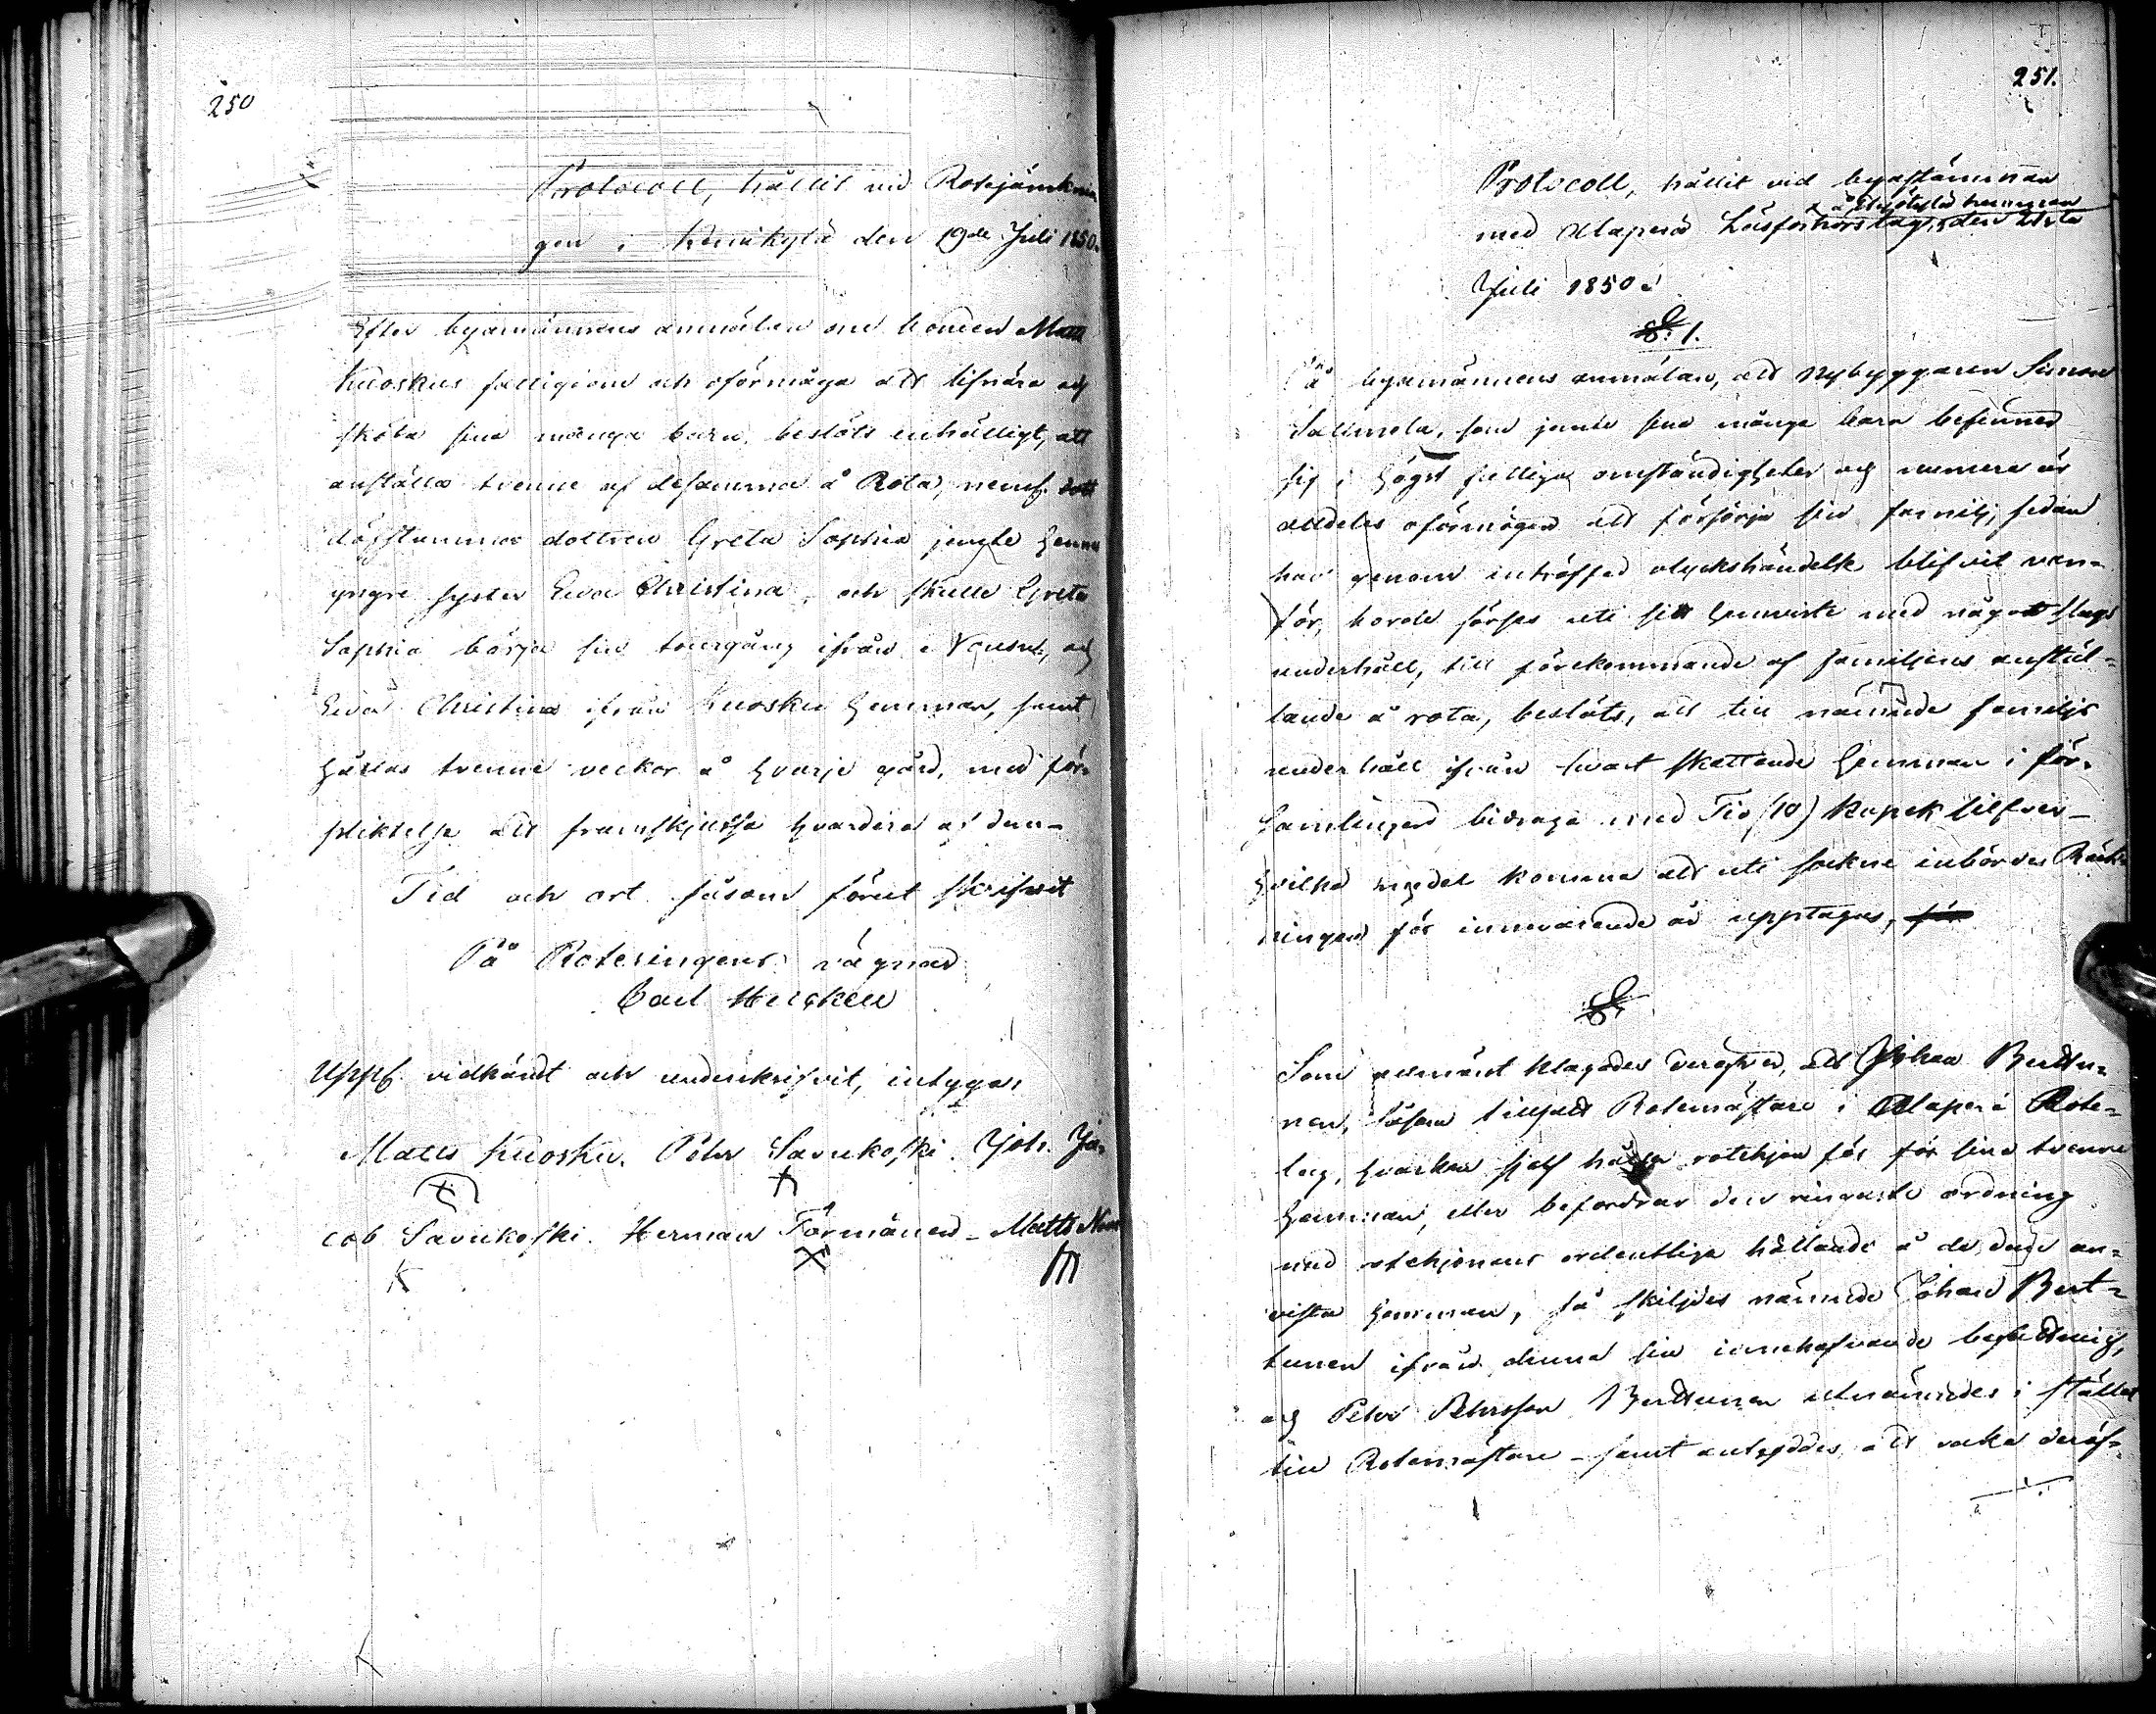 250
Protocoll, hållit vid Rotejämknin
gen i Kemikylä den 19de Juli 1850.
Efter byamännens anmälan om bonden Matts
Kuoskus fattigdom och oförmåga att lifnära och
sköta sina många barn, beslöts enhälligt, att
anställa tvenne af desamma å Rota, neml.
döfstumma dottren Greta Sophia jemte hennes
yngre syster Eva Christina, och skulle Greta
Sophia börja sin tourgång ifrån Nousu, och
Eva Christina ifrån Kuosku hemman, samt
hållas tvenne veckor å hvarje gård, med för-
pliktelse att framskjussa hvardera af dem-
Tid och ort såsom förut skrifvit
På Roteringens vägnar
Carl Heickell
Uppl. vidkändt och underskrifvit, intyga,
Matts Kuosku. Pehr Savukoski. Joh. Ja-
cob Savukoski. Herman Törmänen - Matts Nou
251.
Protocoll, hållit vid byastämman
å hemman
med Alaperä Läsförhörslag, den 21sta
Juli 1850.
§. 1.
På byamännens anmälan, att Nybyggaren Simon
Salmela, som jemte sina många barn befinner
sig i högst fattiga omständigheter och numera är
alldeles oförmögen att försörja sin familj, sedan
han genom inträffad olyckshändelse blifvit van-
för, borde förses uti sitt hemvist med något slags
underhåll, till förekommande af familjens anstäl-
lande å rota, beslöts, att till nämnde familjs
underhåll ifrån hvart skattande hemman i för-
samlingen bidraga med Tio (10) kopek silfver-
hvilka medel komma att uti socknens inbördes Räk
ningen för innevarande år upptagas, för
§
Som allmänt klagades deröfver, att Johan Bertu-
nen, såsom tillsatt Rotemästare i Alaperä Rote-
lag, hvarken sjelf håller rotehjon för för sina tvenne
hemman, eller befordrar den ringaste ordning
med rotehjonens ordentliga hållande å de dem an-
vista hemman, så skiljdes nämnde Johan Bert-
tunen ifrån denna sin innehafvande befattning,
och Pehr Pehrsson Berttunen utnämndes i stället
till Rotemästare - samt antyddes att vaka deröf-